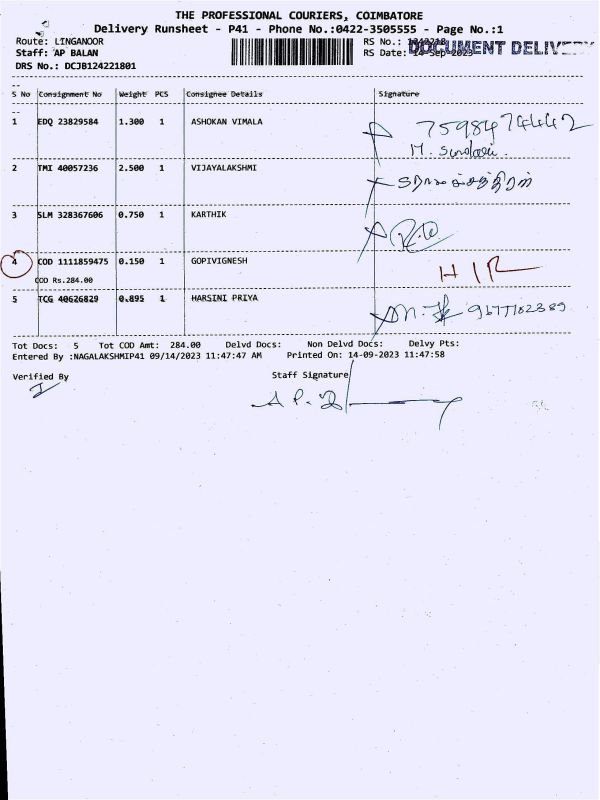 THE PROFESSIONAL COURIERS, COIMBATORE
Delivery Runsheet - P41 - Phone No.:0422-3505555 - Page No.:1
Route: LINGANOOR
RS No.:
DOCUMENT DELIV
Staff: AP BALAN
RS Date: 14-Sep-2023
DRS No.: DCJB124221801
S No Consignment No Weight PCS Consignee Details Signature
1 EDQ 23829584 1.300 1 ASHOKAN VIMALA 7598474442
M. Sundari.
2 TMI 40057236 2.500 1 VIJAYALAKSHMI
3 SLM 328367606 0.750 1 KARTHIK
4 COD 1111859475 0.150 1 GOPIVIGNESH HIR
COD Rs.284.00
5 TCG 40626829 0.895 1 HARSINI PRIYA 9677182389
Tot Docs: 5 Tot COD Amt: 284.00 Delvd Docs: Non Delvd Docs: Delvy Pts:
Entered By :NAGALAKSHMIP41 09/14/2023 11:47:47 AM Printed On: 14-09-2023 11:47:58
Verified By Staff Signature